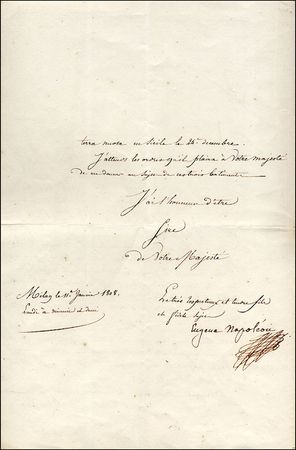 terra nuova en Sicile le 24 decembre.
J'attends les ordres qu'il plaira à Votre majesté
de me donner au sujet de ces trois batiments
J'ai l'honneur d'être
Sire
de Votre Majesté
Milan le 11 Janvier 1808.
Lundi à
Le très respectueux et tendre fils
et fidèle sujet
Eugene Napoléon